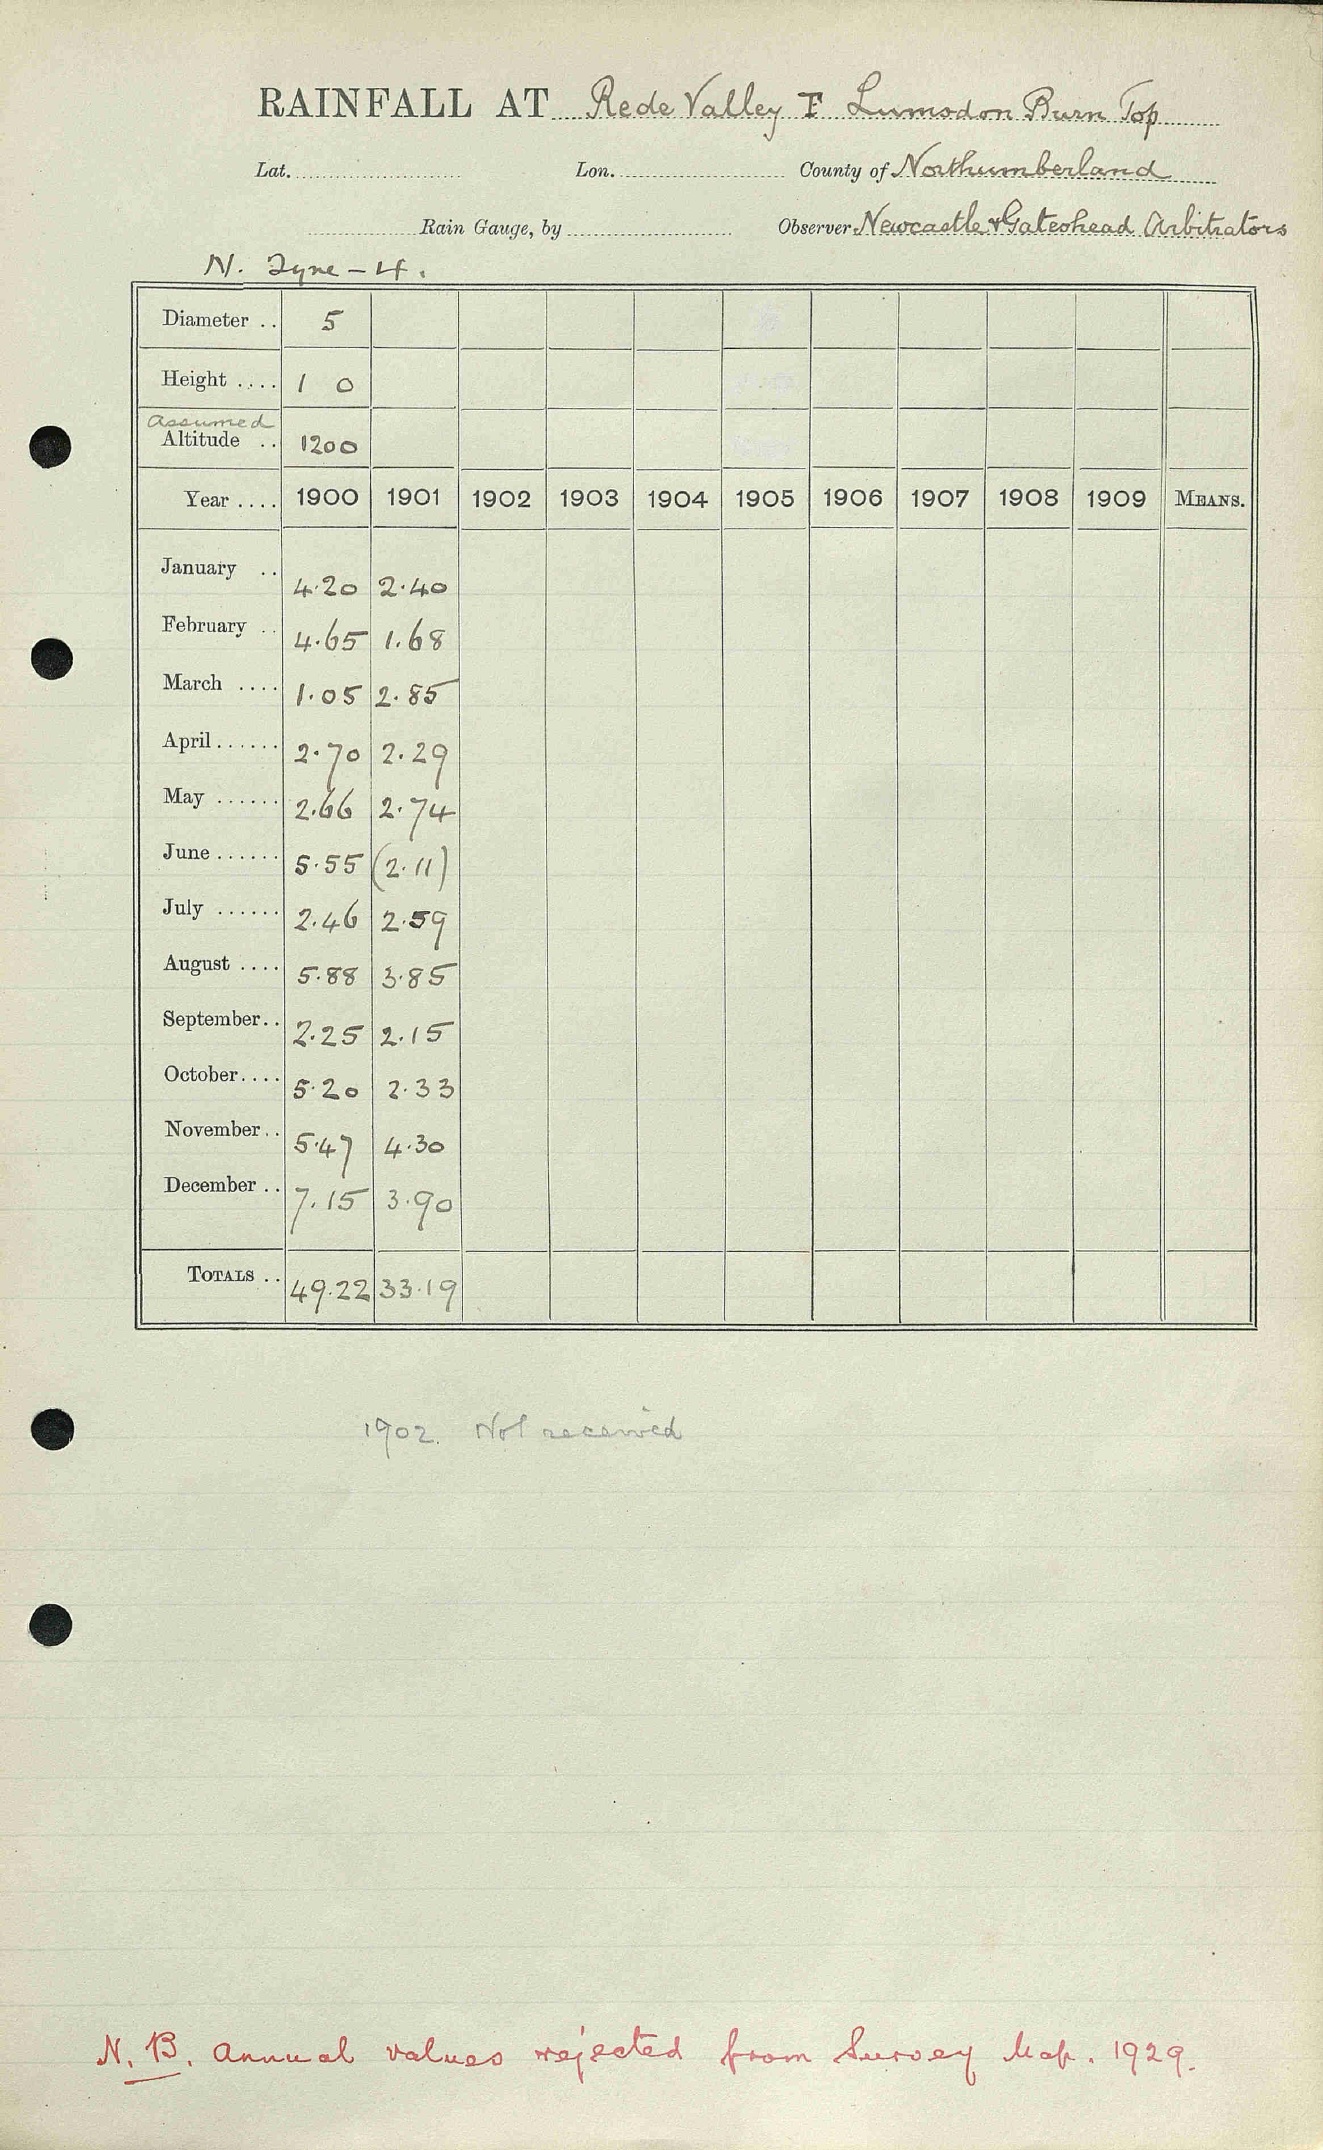 RAINFALL AT Rede Valley F Lumsdon Burn Top
Lat. Lon. County of Northumberland
Rain Gauge, by Observer Newcastle & Gateshead Arbitrators
N. Tyne - 4.
Diameter .. 5
Height .... 1 0
assumed
Altitude .. 1200
Year .... 1900 1901 1902 1903 1904 1905 1906 1907 1908 1909 MEANS.
January .. 4.20 2.40
February .. 4.65 1.68
March .... 1.05 2.85
April ...... 2.70 2.29
May ...... 2.66 2.74
June ...... 5.55 (2.11)
July ...... 2.46 2.59
August .... 5.88 3.85
September .. 2.25 2.15
October .... 5.20 2.33
November .. 5.47 4.30
December .. 7.15 3.90
TOTALS .. 49.22 33.19
1902. Not received
N.B. Annual values rejected from Survey Map. 1929.